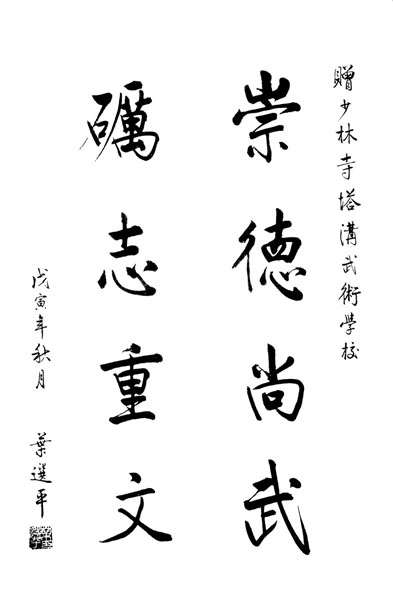 贈少林寺塔溝武術學校
崇德尚武
礪志重文
戊寅年秋月
葉選平